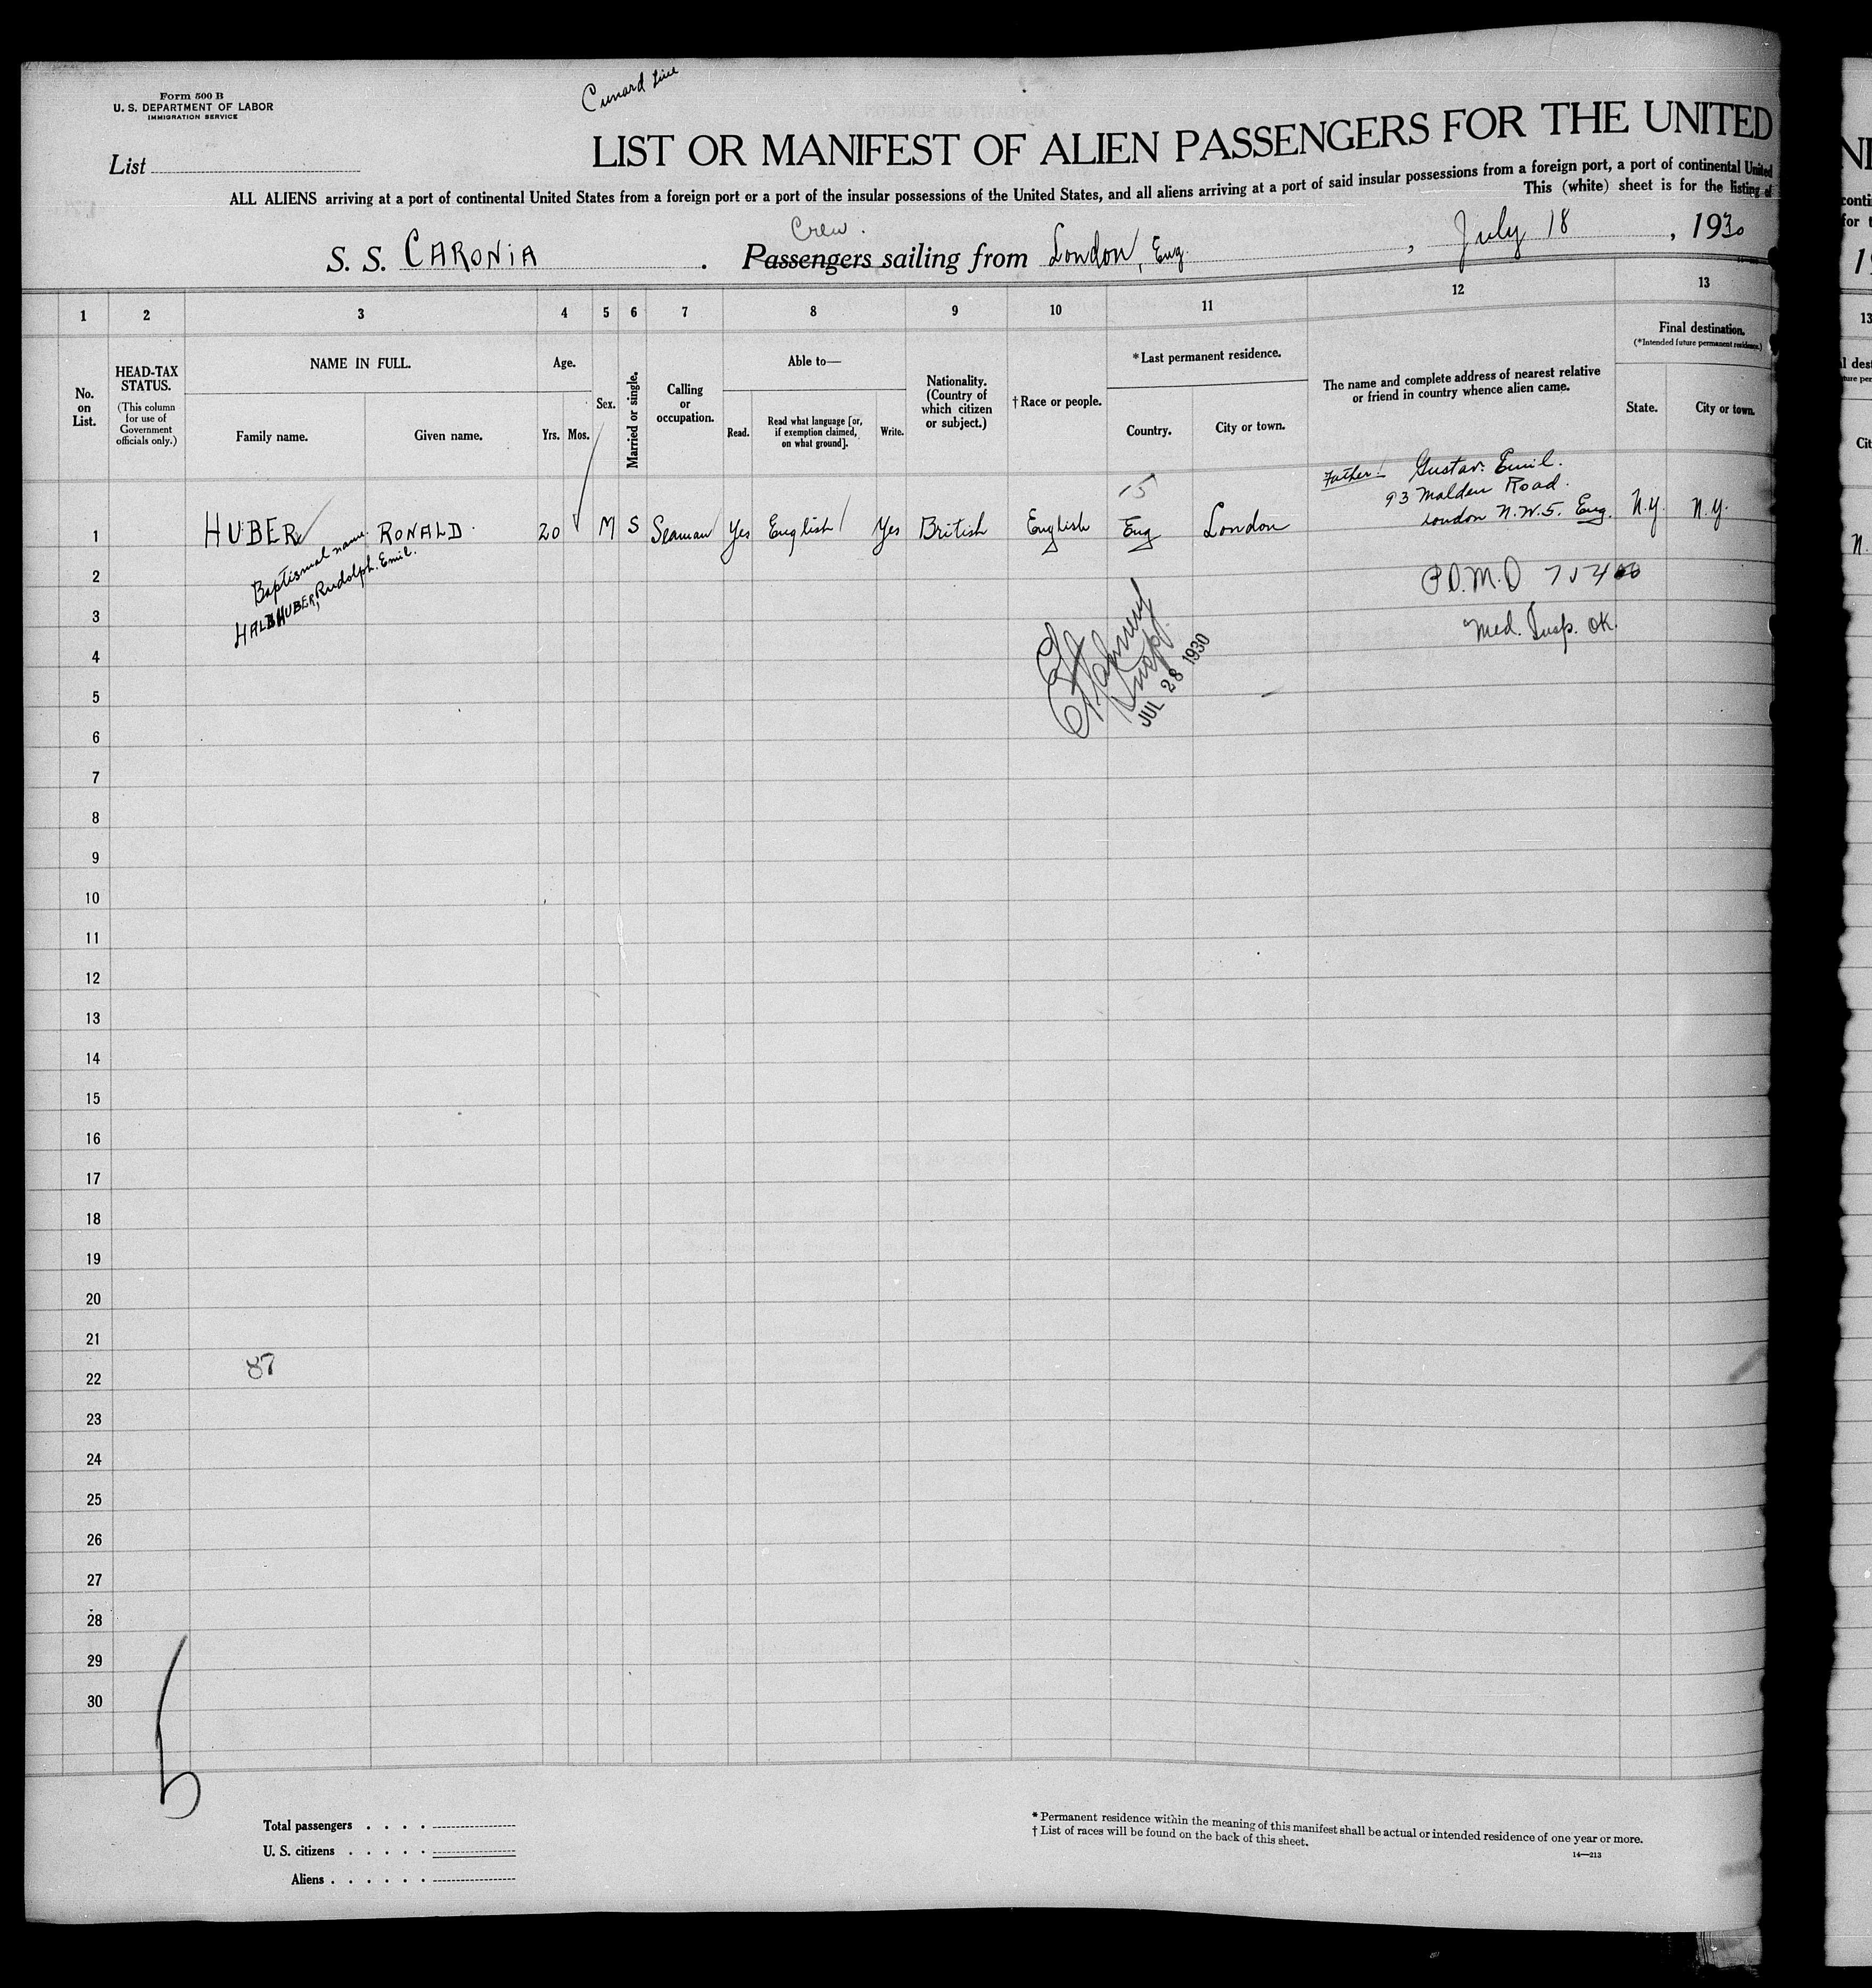 Form 500 B
U. S. DEPARTMENT OF LABOR
IMMIGRATION SERVICE
Cunard Line
List
LIST OR MANIFEST OF ALIEN PASSENGERS FOR THE UNITED
ALL ALIENS arriving at a port of continental United States from a foreign port or a port of the insular possessions of the United States, and all aliens arriving at a port of said insular possessions from a foreign port, a port of continental United
This (white) sheet is for the listing of
Crew.
S. S. CARONIA . Passengers sailing from London, Eng. , July 18 , 1930
1 2 3 4 5 6 7 8 9 10 11 12 13
No. on List.
HEAD-TAX STATUS.
(This column for use of Government officials only.)
NAME IN FULL.
Family name. Given name.
Age.
Yrs. Mos.
Sex.
Married or single.
Calling or occupation.
Able to—
Read. Read what language [or, if exemption claimed, on what ground]. Write.
Nationality. (Country of which citizen or subject.)
†Race or people.
*Last permanent residence.
Country. City or town.
The name and complete address of nearest relative or friend in country whence alien came.
Final destination.
(*Intended future permanent residence.)
State. City or town.
Father: Gustav. Emil.
93 Malden Road.
London N.W.5. Eng.
1 HUBER RONALD 20 M S Seaman Yes English Yes British English Eng London N.Y. N.Y.
Baptismal name.
HUBER, Rudolph. Emil.
2
P.D.M.D
3
Med. Insp. OK.
4
JUL 28 1930
5
6
7
8
9
10
11
12
13
14
15
16
17
18
19
20
21
87
22
23
24
25
26
27
28
29
30
Total passengers . . . .
U. S. citizens . . . . .
Aliens . . . . . .
* Permanent residence within the meaning of this manifest shall be actual or intended residence of one year or more.
† List of races will be found on the back of this sheet.
14—213